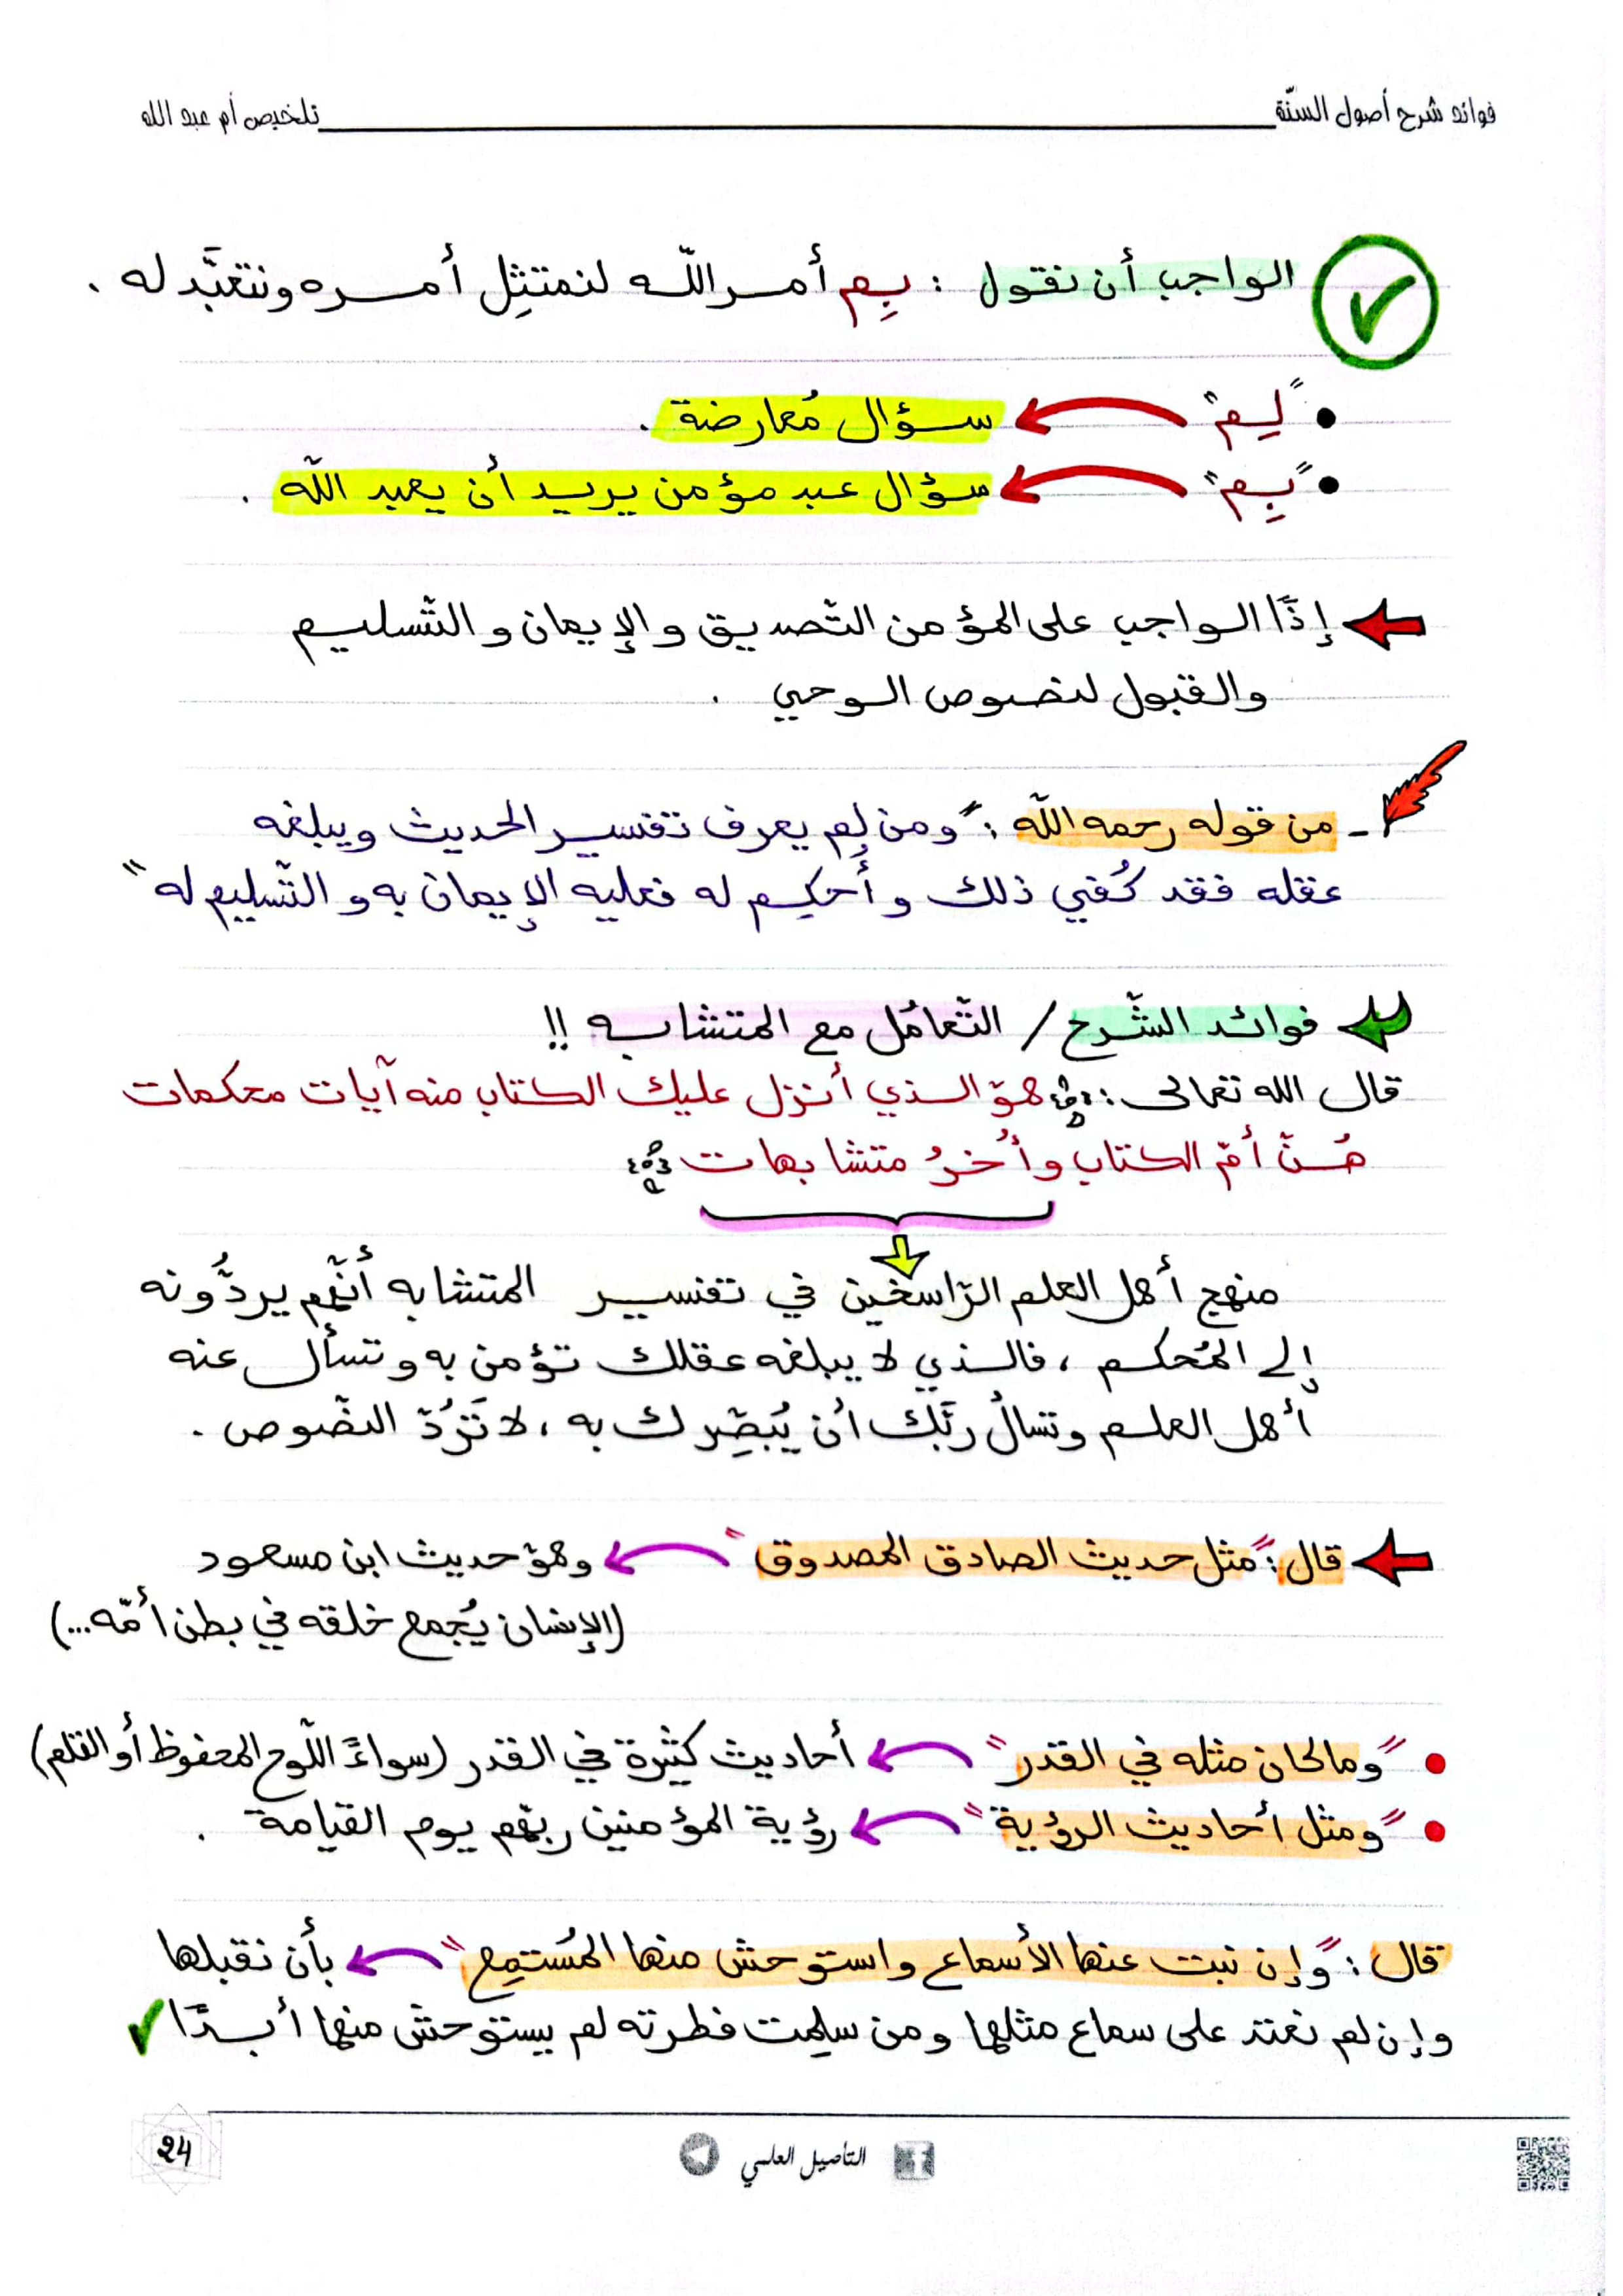 فوائد شرح أصول السنّة
تلخيص أم عبد الله
الواجب أن نقول : بِم أمر اللّه لنمتثِل أمره ونتعبَّد له .
• "لِم" سؤال مُعارضة .
• "بِم" سؤال عبد مؤمن يريد أن يعبد اللّه .
إذًا الواجب على المؤمن التّصديق والإيمان والتّسليم
والقبول لنصوص الوحي .
- من قوله رحمه اللّه : "ومن لم يعرف تفسير الحديث ويبلغه
عقله فقد كُفي ذلك وأُحكِم له فعليه الإيمان به والتّسليم له"
فوائد الشّرح / التّعامُل مع المتشابه !!
قال الله تعالى : ﴿هوّ الذي أنزل عليك الكتاب منه آيات محكمات
هُنّ أمّ الكتاب وأُخرُ متشابهات﴾
منهج أهل العلم الرّاسخين في تفسير المتشابه أنّهُم يردُّونه
إلى المُحكم ، فالذي لا يبلغه عقلك تؤمن به وتسأل عنه
أهل العلم وتسألُ ربَّك أن يُبصِّرك به ، لا تَرُدّ النصّوص .
قال : "مثل حديث الصادق المصدوق" وهوّ حديث ابن مسعود
(الإنسان يُجمع خلقه في بطن أمّه...)
• "وما كان مثله في القدر" أحاديث كثيرة في القدر (سواءً اللّوح المحفوظ أو القلم)
• "ومثل أحاديث الرؤية" رؤية المؤمنين ربّهم يوم القيامة .
قال : "وإن نبت عنها الأسماع واستوحش منها المُستمِع" بأن نقبلها
وإن لم نعتد على سماع مثلها ومن سلِمت فطرته لم يستوحش منها أبدًا
التأصيل العلمي
24